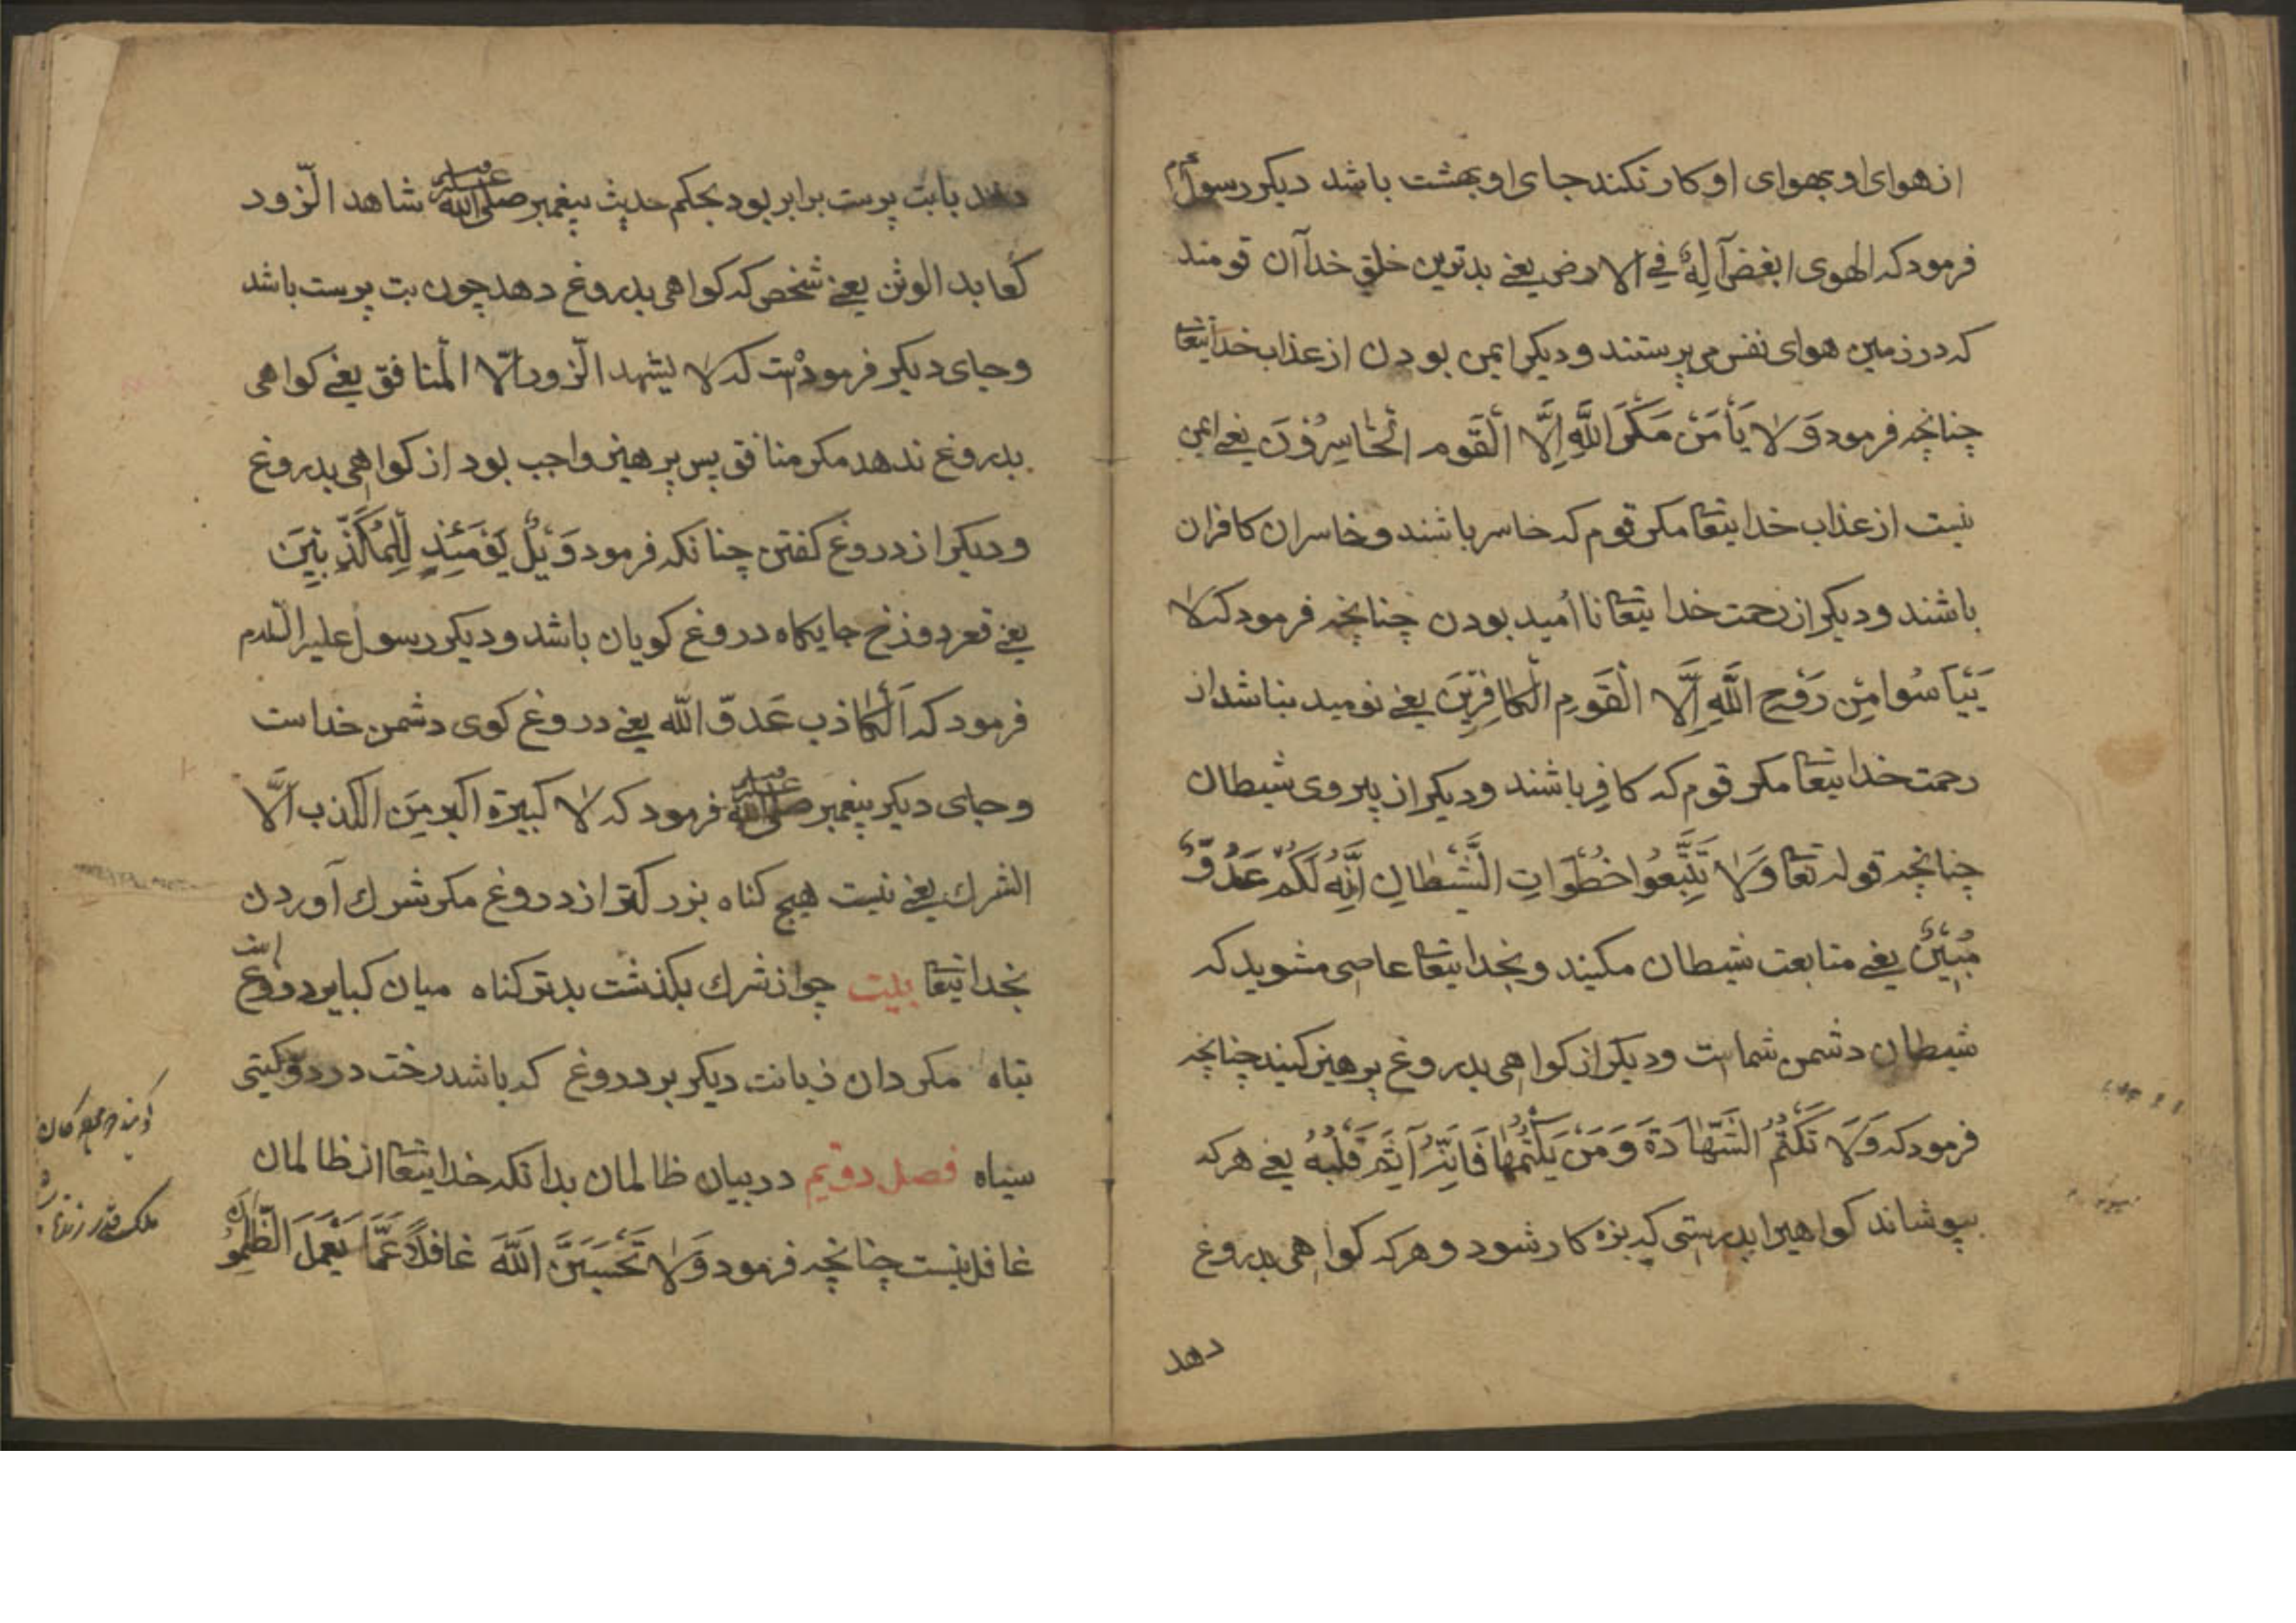 از هوای او بهوای او کار نکند جای او بهشت باشد دیکر رسول
فرمود که الهوی ابغض آلِهٌ فی الارض یعنی بدترین خلق خدا آن قومند
که در زمین هوای نفس می پرستند و دیکر ایمن بودن از عذاب خدایتعا
چنانچه فرمود وَلا یَأمَنَ مَکَرَ اللّهِ اِلَّا القَوم الخاسِرُونَ یعنی ایمن
نیست از عذاب خدایتعا مکر قوم که خاسر باشند و خاسران کافران
باشند و دیکر از رحمت خدایتعا ناامید بودن چنانچه فرمود که لا
یَیْاَسُوا مِن رَوْحِ اللّهِ اِلَّا القَومِ الکافِرِینَ یعنی نومید نباشد از
رحمت خدایتعا مکر قوم که کافر باشند و دیکر از پیروی شیطان
چنانچه قوله تعا وَلا تَتَّبِعُوا خُطُوَاتِ الشَّیْطانِ اِنَّهُ لَکُمْ عَدُوٌّ
مُبِینٌ یعنی متابعت شیطان مکنید و بخدایتعا عاصی مشوید که
شیطان دشمن شماست و دیکر از کواهی بدروغ پرهیز کنید چنانچه
فرمود که وَلَا تَکْتُمُ الشَّهادَةَ وَمَنْ یَکْتُمْها فَاِنَّهُ آثِمٌ قَلْبُهُ یعنی هر که
بپوشاند کواهیرا بدرستی که بزه کار شود و هر که کواهی بدروغ
دهد
دهد بابت پرست برابر بود بحکم حدیث پیغمبر صلی الله علیه وسلم شاهد الزّور
کعابد الوثن یعنی شخص که کواهی بدروغ دهد چون بت پرست باشد
و جای دیکر فرمودست که لا یشهد الزّور الّا المنافق یعنی کواهی
بدروغ ندهد مکر منافق پس پرهیز واجب بود از کواهی بدروغ
و دیکر از دروغ کفتن چنانکه فرمود وَیْلٌ یَوْمَئِذٍ لِلْمُکَذِّبِینَ
یعنی قعر دوزخ جایکاه دروغ کویان باشد و دیکر رسول علیه السّلام
فرمود که اَلْکاذب عَدوّ الله یعنی دروغ کوی دشمن خداست
و جای دیکر پیغمبر صلی الله علیه وسلم فرمود که لا کبیرة اکبر مِنَ الکذب اِلَّا
الشرك یعنی نیست هیچ کناه بزرکتر از دروغ مکر شرك آوردن
بخدایتعا بیت چو از شرك بکذشت بدتر کناه میان کبایر دروغ است
تباه مکردان زبانت دیکر بر دروغ که باشد رخت در دو کیتی
سیاه فصل دویّم در بیان ظالمان بدانکه خدایتعا از ظالمان
غافل نیست چنانچه فرمود وَلا تَحْسَبَنَّ اللّهَ غافلاً عَمَّا یَعْمَلُ الظّٰلِمُونَ